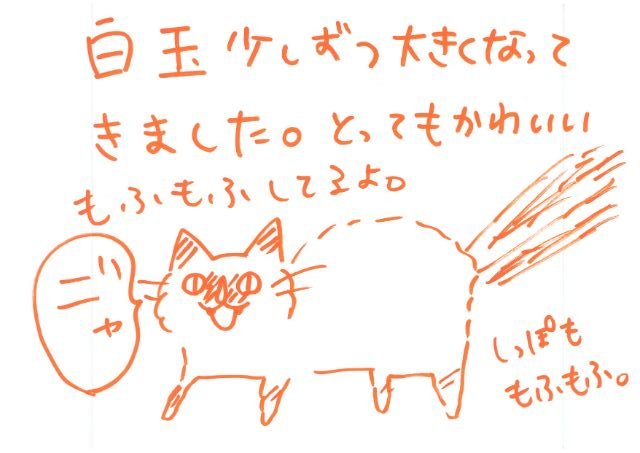 白玉少しずつ大きくなって
きました。とってもかわいい
もふもふしてるよ。
ジャ
しっぽも
もふもふ。